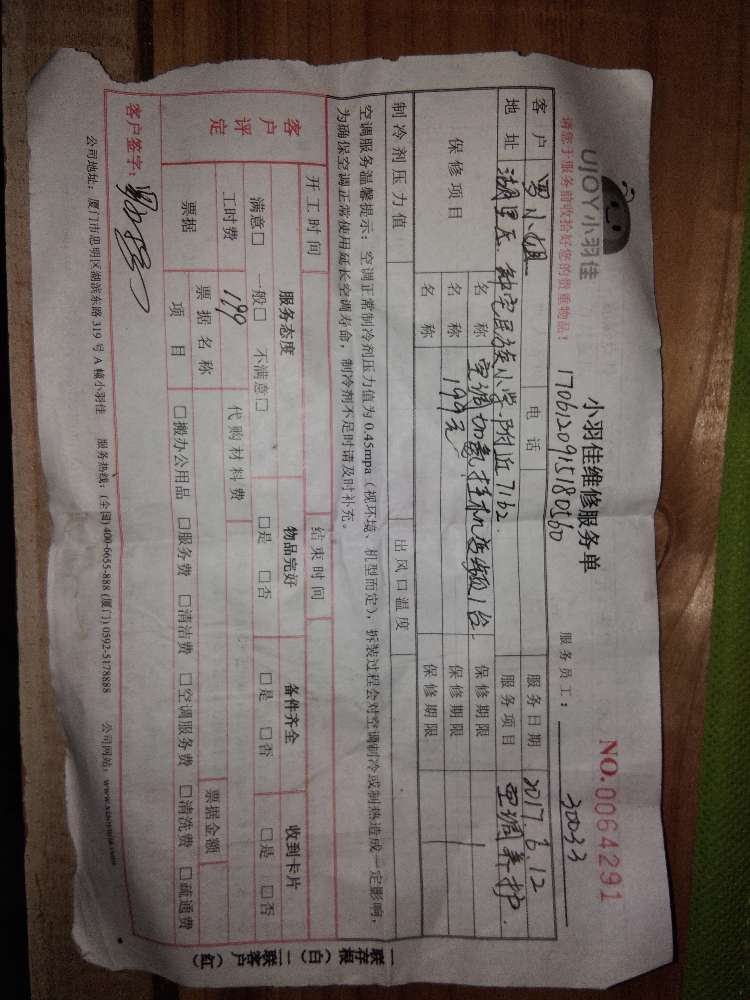 UJOY小羽佳
小羽佳维修服务单
NO.0064291
请您于服务前收拾好您的贵重物品!
1706120915180560
服务员工: 30033
客户 罗小姐 电话 服务日期 2017.6.12
地址 湖里区 钟宅民族小学附近7162. 服务项目 空调养护
保修项目 名称 空调加氨挂机变频1台. 保修期限
名称 199元 保修期限
名称 保修期限
制冷剂压力值 出风口温度
空调服务温馨提示:空调正常制冷剂压力值为0.45mpa(视环境、机型而定),拆装过程会对空调制冷或制热造成一定影响,
为确保空调正常使用延长空调寿命,制冷剂不足时请及时补充。
开工时间 结束时间
客户评定 服务态度 物品完好 备件齐全 收到卡片
满意□ 一般□ 不满意□ □是 □否 □是 □否 □是 □否
工时费 199 代购材料费
票据 票据名称 票据金额
项目 □搬办公用品 □服务费 □清洁费 □空调服务费 □清洗费 □疏通费
客户签字:
公司地址:厦门市思明区湖滨东路319号A幢小羽佳 服务热线:(全国)400-6655-888 (厦门)0592-5178888 公司网站:www.xiaoyujia.com
一联存根(白) 二联客户(红)